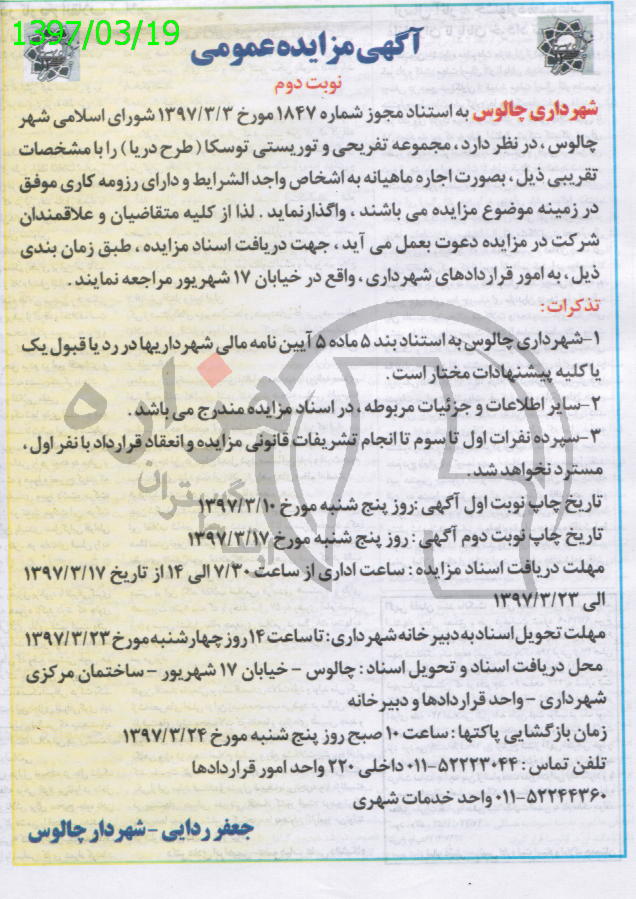 1397/03/19
آگهی مزایده عمومی
نوبت دوم
شهرداری چالوس به استناد مجوز شماره ۱۸۴۷ مورخ ۱۳۹۷/۳/۳ شورای اسلامی شهر
چالوس ، در نظر دارد ، مجموعه تفریحی و توریستی توسکا ( طرح دریا ) را با مشخصات
تقریبی ذیل ، بصورت اجاره ماهیانه به اشخاص واجد الشرایط و دارای رزومه کاری موفق
در زمینه موضوع مزایده می باشند ، واگذارنماید . لذا از کلیه متقاضیان و علاقمندان
شرکت در مزایده دعوت بعمل می آید ، جهت دریافت اسناد مزایده ، طبق زمان بندی
ذیل ، به امور قراردادهای شهرداری ، واقع در خیابان ۱۷ شهریور مراجعه نمایند .
تذکرات :
۱-شهرداری چالوس به استناد بند ۵ ماده ۵ آیین نامه مالی شهرداریها در رد یا قبول یک
یا کلیه پیشنهادات مختار است .
۲-سایر اطلاعات و جزئیات مربوطه ، در اسناد مزایده مندرج می باشد .
۳-سپرده نفرات اول تا سوم تا انجام تشریفات قانونی مزایده و انعقاد قرارداد با نفر اول ،
مسترد نخواهد شد .
تاریخ چاپ نوبت اول آگهی :روز پنج شنبه مورخ ۱۳۹۷/۳/۱۰
تاریخ چاپ نوبت دوم آگهی : روز پنج شنبه مورخ ۱۳۹۷/۳/۱۷
مهلت دریافت اسناد مزایده : ساعت اداری از ساعت ۷/۳۰ الی ۱۴ از تاریخ ۱۳۹۷/۳/۱۷
الی ۱۳۹۷/۳/۲۳
مهلت تحویل اسناد به دبیرخانه شهرداری : تا ساعت ۱۴ روز چهارشنبه مورخ ۱۳۹۷/۳/۲۳
محل دریافت اسناد و تحویل اسناد : چالوس - خیابان ۱۷ شهریور - ساختمان مرکزی
شهرداری - واحد قراردادها و دبیرخانه
زمان بازگشایی پاکتها : ساعت ۱۰ صبح روز پنج شنبه مورخ ۱۳۹۷/۳/۲۴
تلفن تماس : ۵۲۲۲۳۰۴۴-۰۱۱ داخلی ۲۲۰ واحد امور قراردادها
۵۲۲۴۴۳۶۰-۰۱۱ واحد خدمات شهری
جعفر ردایی - شهردار چالوس
هزاره
گستران